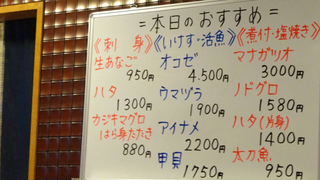 =本日のおすすめ=
《刺 身》
生あなご
950円
ハタ
1300円
カジキマグロ
はら身たたき
880円
《いけす・活魚》
オコゼ
4.500円
ウマヅラ
1900円
アイナメ
2200円
甲貝
1750円
《煮付・塩焼き》
マナガツオ
3000円
ノドグロ
1580円
ハタ(片身)
1400円
太刀魚
950円